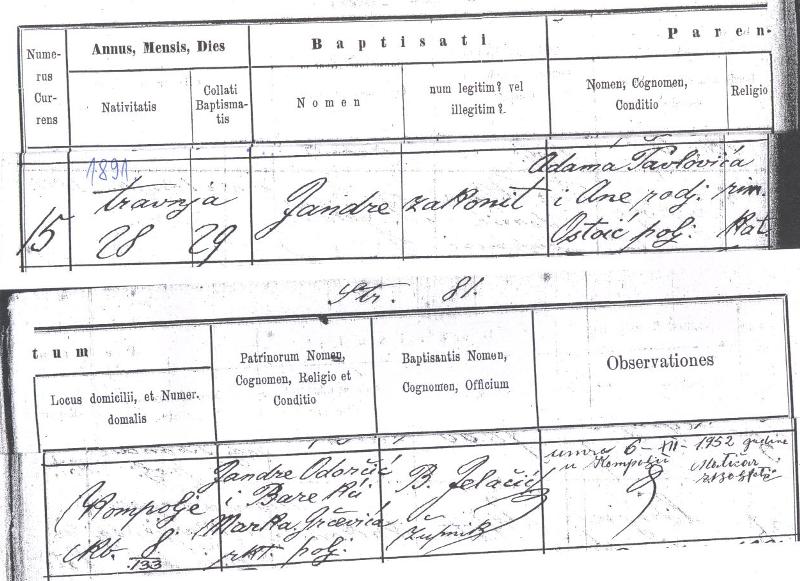 Nume-
rus
Cur-
rens
Annus, Mensis, Dies
Nativitatis
Collati
Baptisma-
tis
Baptisati
Nomen
num legitim? vel
illegitim?
Paren-
Nomen, Cognomen,
Conditio
Religio
15
1891
travnja
28 29
Jandre
zakonit
Adama Pavlovića
i Ane rodj.
Ostoić polj.
rim.
kat.
Str. 81.
tum
Locus domicilii, et Numer.
domalis
Patrinorum Nomen,
Cognomen, Religio et
Conditio
Baptisantis Nomen,
Cognomen, Officium
Observationes
Kompolje
kb. 8.
133
Jandre Odorčić
i Bare kći
Marka Grčevića
rkt. polj.
B. Jelačić
župnik
umro 6-XII-1952 godine
u Kompolju Matičar